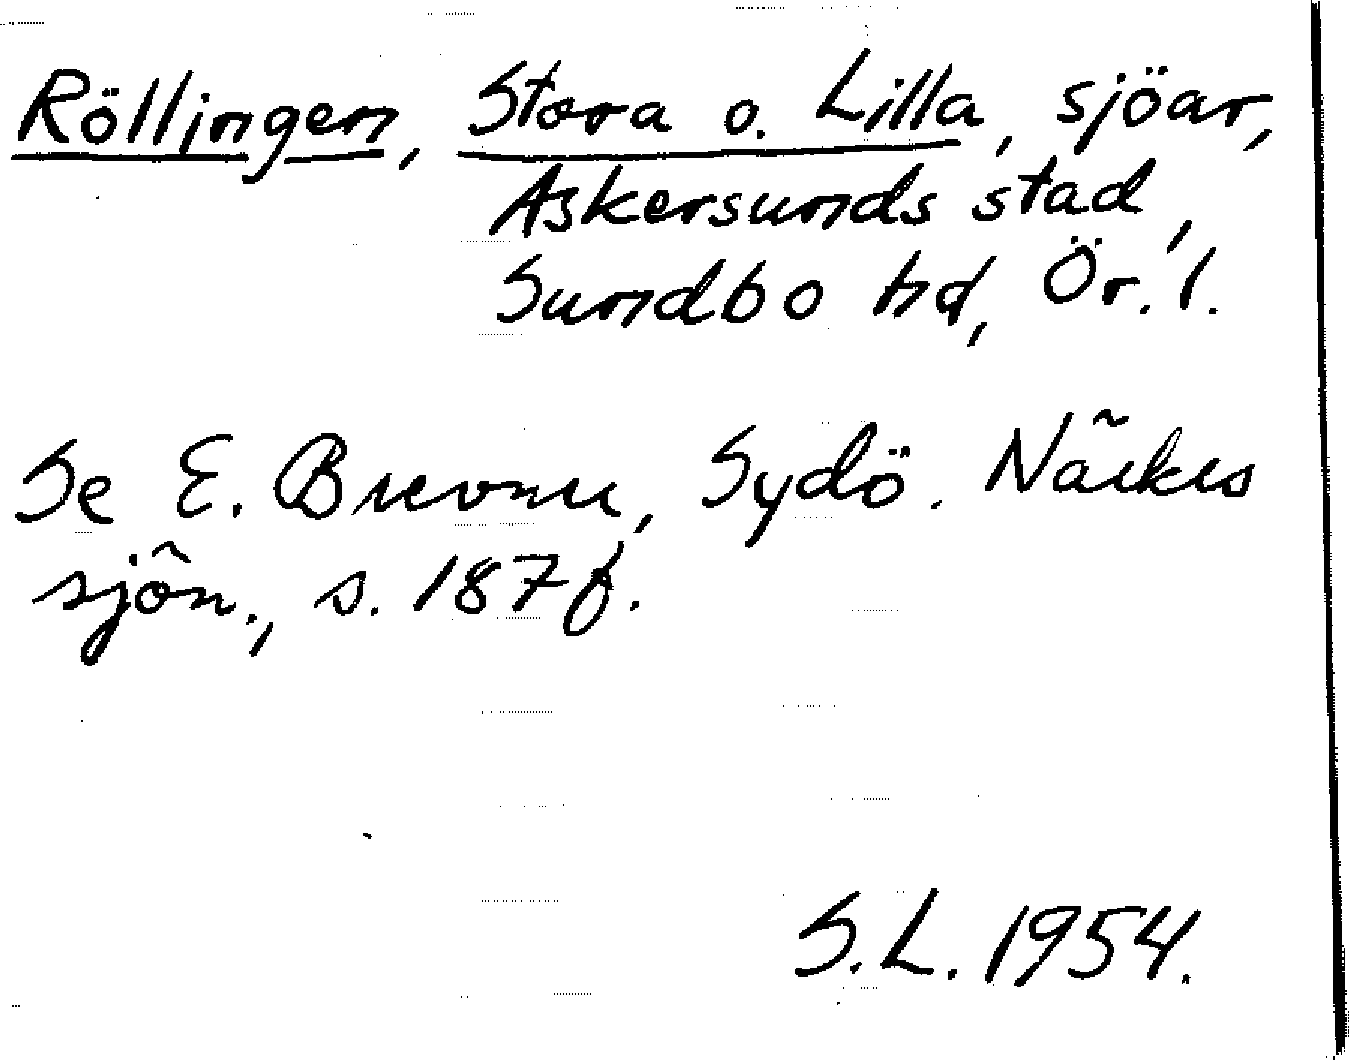 Röllingen, Stora o. Lilla, sjöar,
Askersunds stad,
Sundbo hd, Ör. l.
Se E. Brevner, Sydö. Närkes
sjön., s. 187 f.
S.L. 1954.